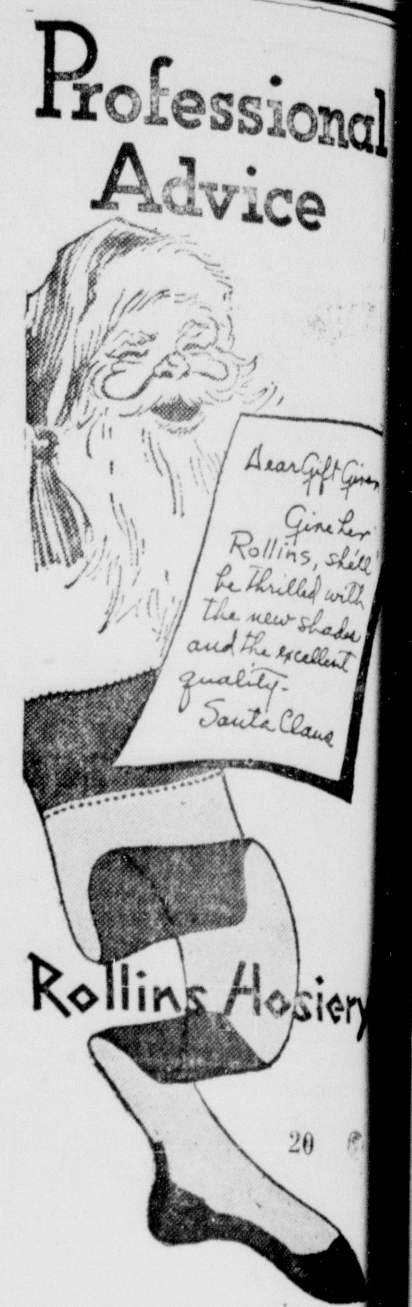 Professional
Advice
Dear Gift Giver
Give her
Rollins, she'll
be thrilled with
the new shades
and the excellent
quality-
Santa Claus
Rollins Hosiery
20